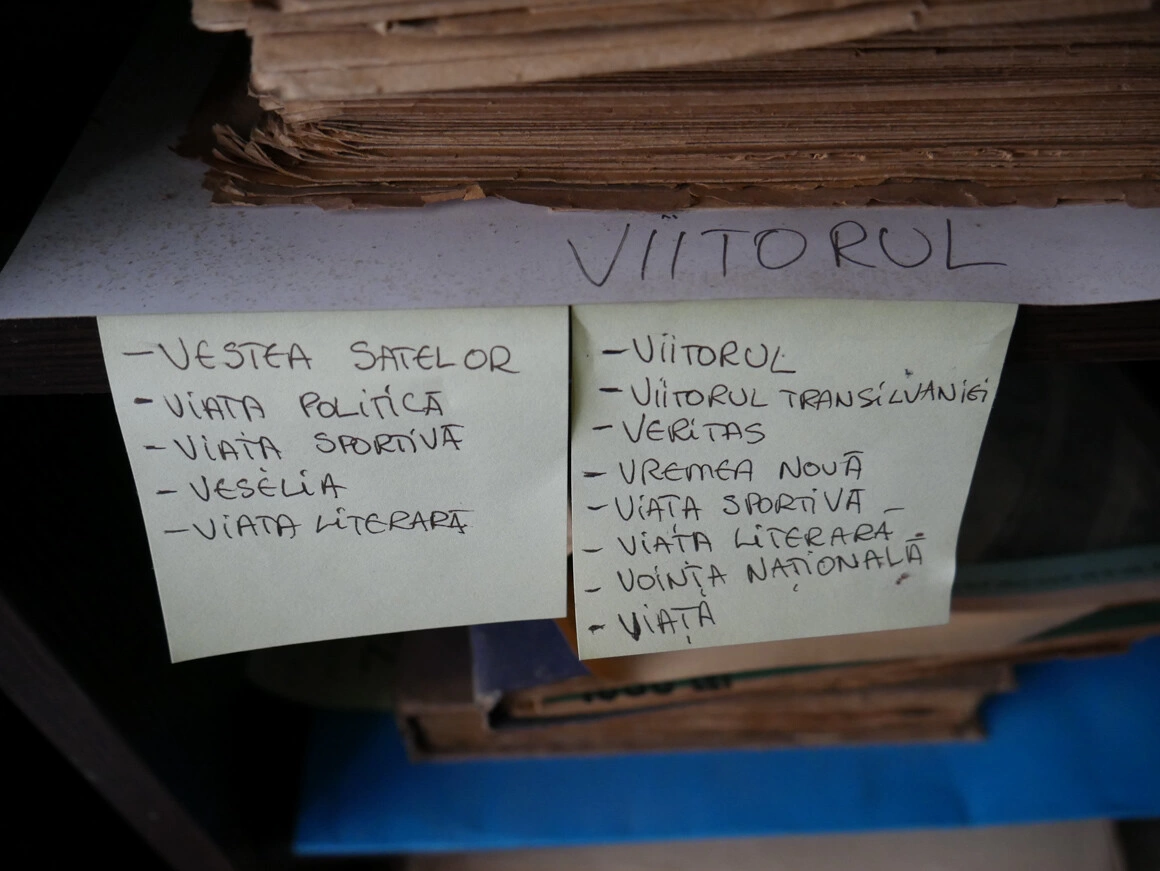 VIITORUL
- VESTEA SATELOR
- VIATA POLITICĂ
- VIATA SPORTIVĂ
- VESELIA
- VIATA LITERARĂ
- VIITORUL
- VIITORUL TRANSILVANIEI
- VERITAS
- VREMEA NOUĂ
- VIATA SPORTIVĂ
- VIAȚA LITERARĂ
- VOINȚA NAȚIONALĂ
- VIAȚA